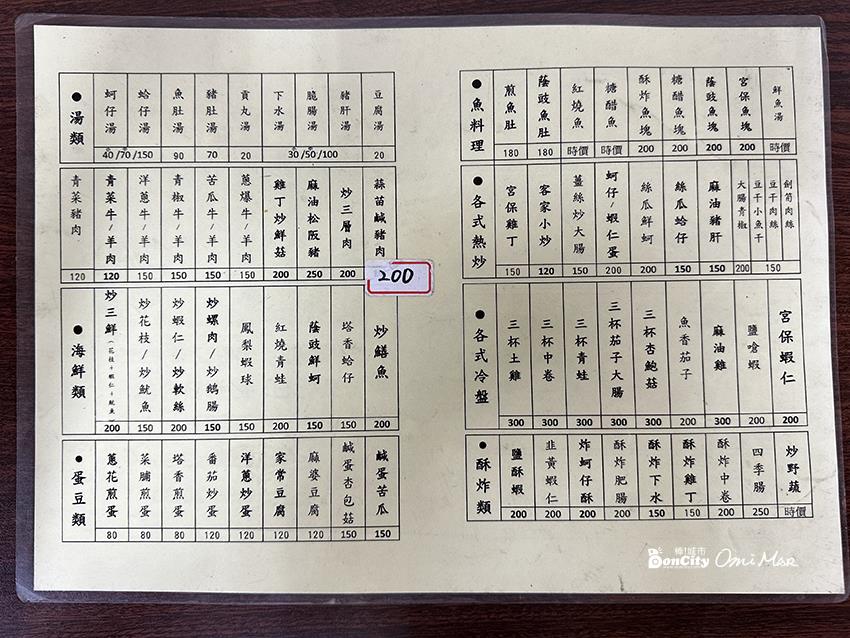 ●湯類
蚵仔湯
蛤仔湯
40/70/150
魚肚湯 90
豬肚湯 70
貢丸湯 20
下水湯
脆腸湯
豬肝湯
30/50/100
豆腐湯 20
青菜豬肉 120
青菜牛/羊肉 120
洋蔥牛/羊肉 150
青椒牛/羊肉 150
苦瓜牛/羊肉 150
蔥爆牛/羊肉 150
雞丁炒鮮菇 200
麻油松阪豬 250
炒三層肉 200
蒜苗鹹豬肉 200
●海鮮類
炒三鮮(花枝+蝦仁+魷魚) 200
炒花枝/炒魷魚 150
炒蝦仁/炒軟絲 200
炒螺肉/炒鵝腸 150
鳳梨蝦球 150
紅燒青蛙 200
蔭豉鮮蚵 150
塔香蛤仔 150
炒鱔魚 200
●蛋豆類
蔥花煎蛋 80
菜脯煎蛋 80
塔香煎蛋 80
番茄炒蛋 120
洋蔥炒蛋 120
家常豆腐 120
麻婆豆腐 120
鹹蛋杏包菇 150
鹹蛋苦瓜 150
●魚料理
煎魚肚 180
蔭豉魚肚 180
紅燒魚 時價
糖醋魚 時價
酥炸魚塊 200
糖醋魚塊 200
蔭豉魚塊 200
宮保魚塊 200
鮮魚湯 時價
●各式熱炒
宮保雞丁 150
客家小炒 120
薑絲炒大腸 150
蚵仔/蝦仁蛋 200
絲瓜鮮蚵 200
絲瓜蛤仔 150
麻油豬肝 150
大腸青椒 200
豆干小魚干
豆干肉絲
劍筍肉絲
150
●各式冷盤
三杯土雞 300
三杯中卷 300
三杯青蛙 300
三杯茄子大腸 300
三杯杏鮑菇 300
魚香茄子 200
麻油雞 300
鹽嗆蝦 200
宮保蝦仁 200
●酥炸類
鹽酥蝦 200
韭黃蝦仁 200
炸蚵仔酥 200
酥炸肥腸 200
酥炸下水 150
酥炸雞丁 150
酥炸中卷 200
四季腸 250
炒野蔬 時價
棒!城市
BonCity Omi Mar